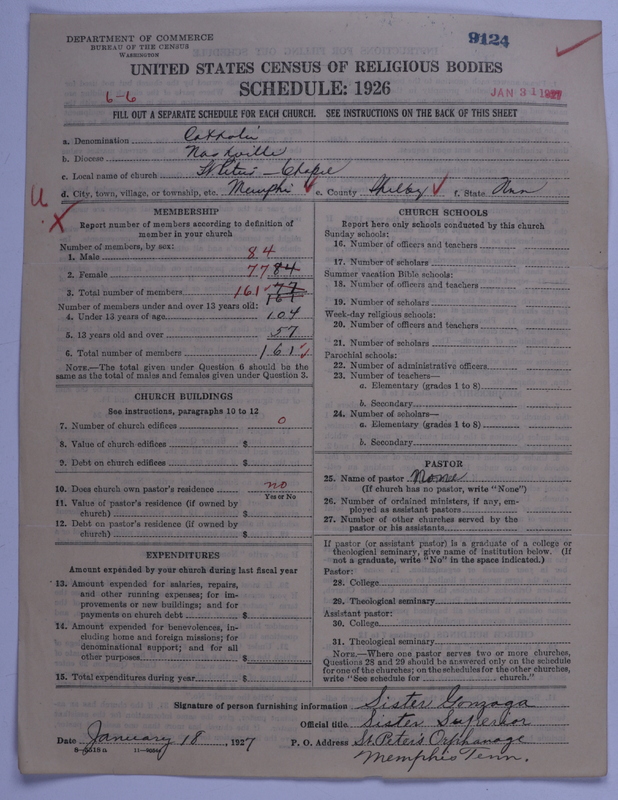 DEPARTMENT OF COMMERCE
BUREAU OF THE CENSUS
WASHINGTON
9124
UNITED STATES CENSUS OF RELIGIOUS BODIES
SCHEDULE: 1926
6-6
JAN 31 1927
FILL OUT A SEPARATE SCHEDULE FOR EACH CHURCH. SEE INSTRUCTIONS ON THE BACK OF THIS SHEET
a. Denomination Catholic
b. Diocese Nashville
c. Local name of church St Peters - Chapel
d. City, town, village, or township, etc. Memphis e. County Shelby f. State Tenn
MEMBERSHIP
Report number of members according to definition of
member in your church
Number of members, by sex:
1. Male 84
2. Female 77 84
3. Total number of members 161 77
161
Number of members under and over 13 years old:
4. Under 13 years of age 104
5. 13 years old and over 57
6. Total number of members 161
NOTE.—The total given under Question 6 should be the
same as the total of males and females given under Question 3.
CHURCH BUILDINGS
See instructions, paragraphs 10 to 12
7. Number of church edifices 0
8. Value of church edifices $
9. Debt on church edifices $
10. Does church own pastor's residence no
Yes or No
11. Value of pastor's residence (if owned by
church) $
12. Debt on pastor's residence (if owned by
church) $
EXPENDITURES
Amount expended by your church during last fiscal year
13. Amount expended for salaries, repairs,
and other running expenses; for im-
provements or new buildings; and for
payments on church debt $
14. Amount expended for benevolences, in-
cluding home and foreign missions; for
denominational support; and for all
other purposes $
15. Total expenditures during year $
CHURCH SCHOOLS
Report here only schools conducted by this church
Sunday schools:
16. Number of officers and teachers
17. Number of scholars
Summer vacation Bible schools:
18. Number of officers and teachers
19. Number of scholars
Week-day religious schools:
20. Number of officers and teachers
21. Number of scholars
Parochial schools:
22. Number of administrative officers
23. Number of teachers—
a. Elementary (grades 1 to 8)
b. Secondary
24. Number of scholars—
a. Elementary (grades 1 to 8)
b. Secondary
PASTOR
25. Name of pastor None
(If church has no pastor, write "None")
26. Number of ordained ministers, if any, em-
ployed as assistant pastors
27. Number of other churches served by the
pastor or his assistants
If pastor (or assistant pastor) is a graduate of a college or
theological seminary, give name of institution below. (If
not a graduate, write "No" in the space indicated.)
Pastor:
28. College
29. Theological seminary
Assistant pastor:
30. College
31. Theological seminary
NOTE.—Where one pastor serves two or more churches,
Questions 28 and 29 should be answered only on the schedule
for one of the churches; on the schedules for the other churches,
write "See schedule for church."
Signature of person furnishing information Sister Gonzaga
Official title Sister Superior
Date January 18, 1927 P. O. Address St. Peter's Orphanage
Memphis Tenn.